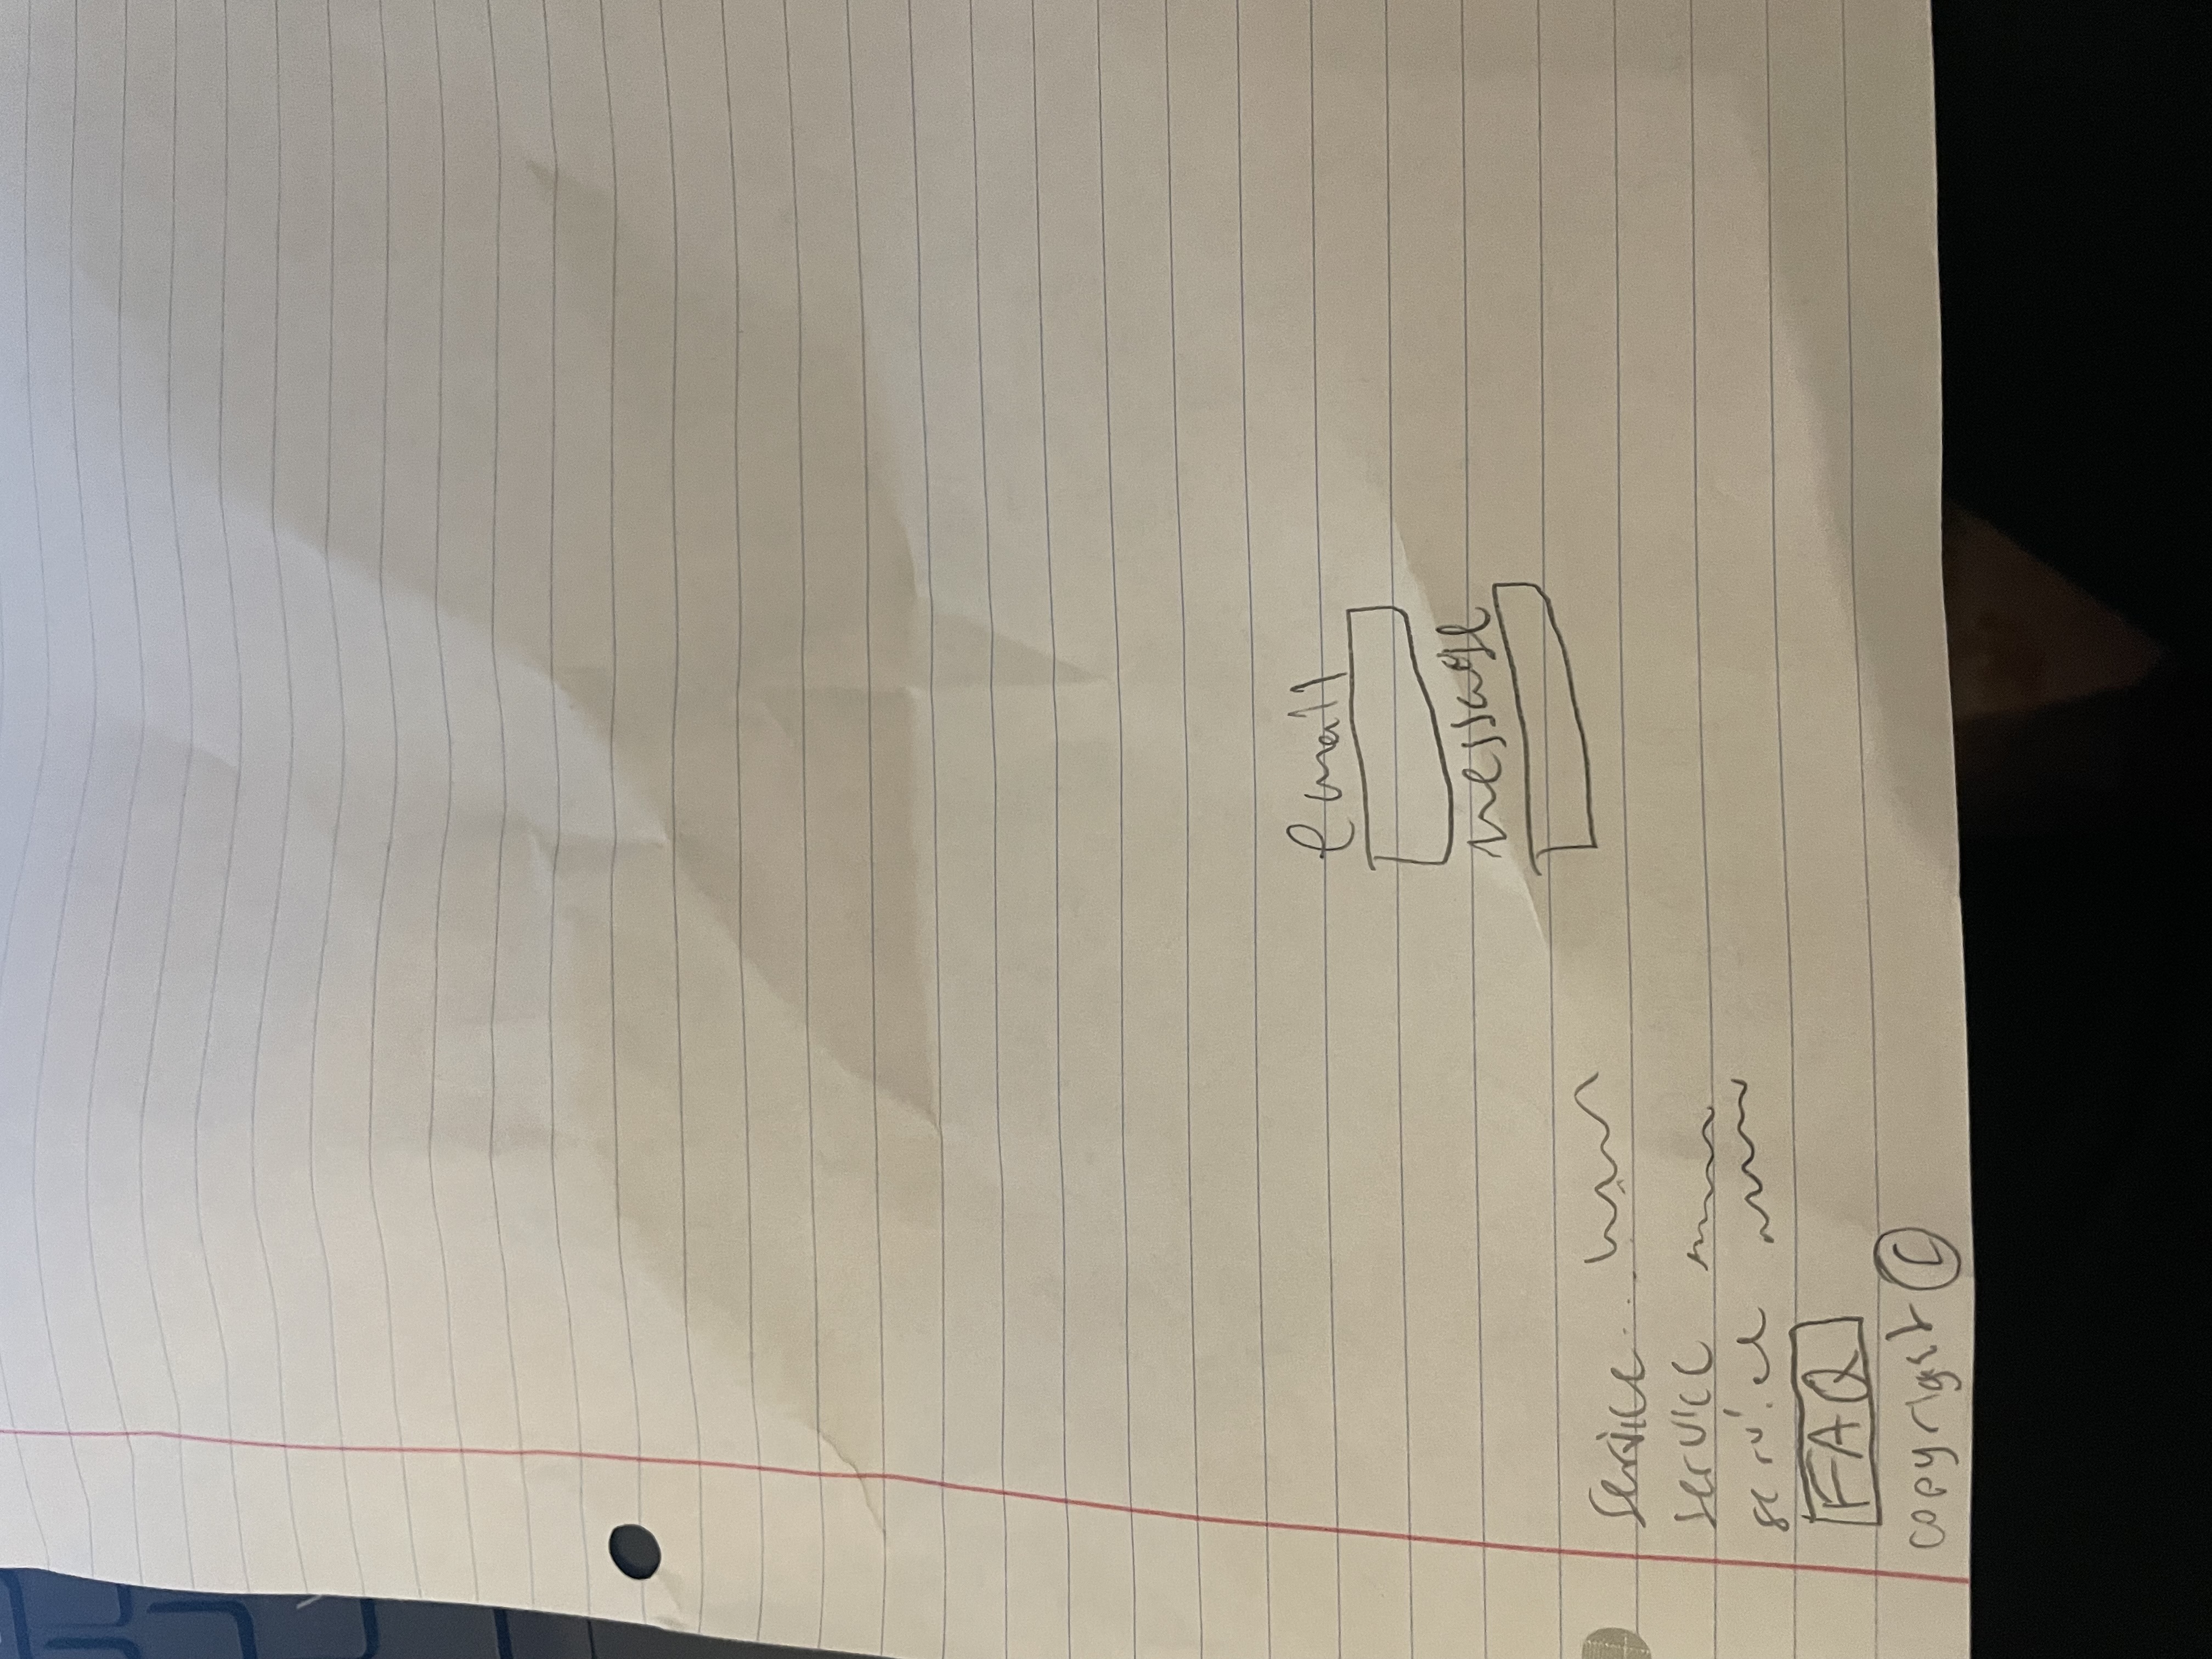 email
message
service
service
service
FAQ
copyright ©